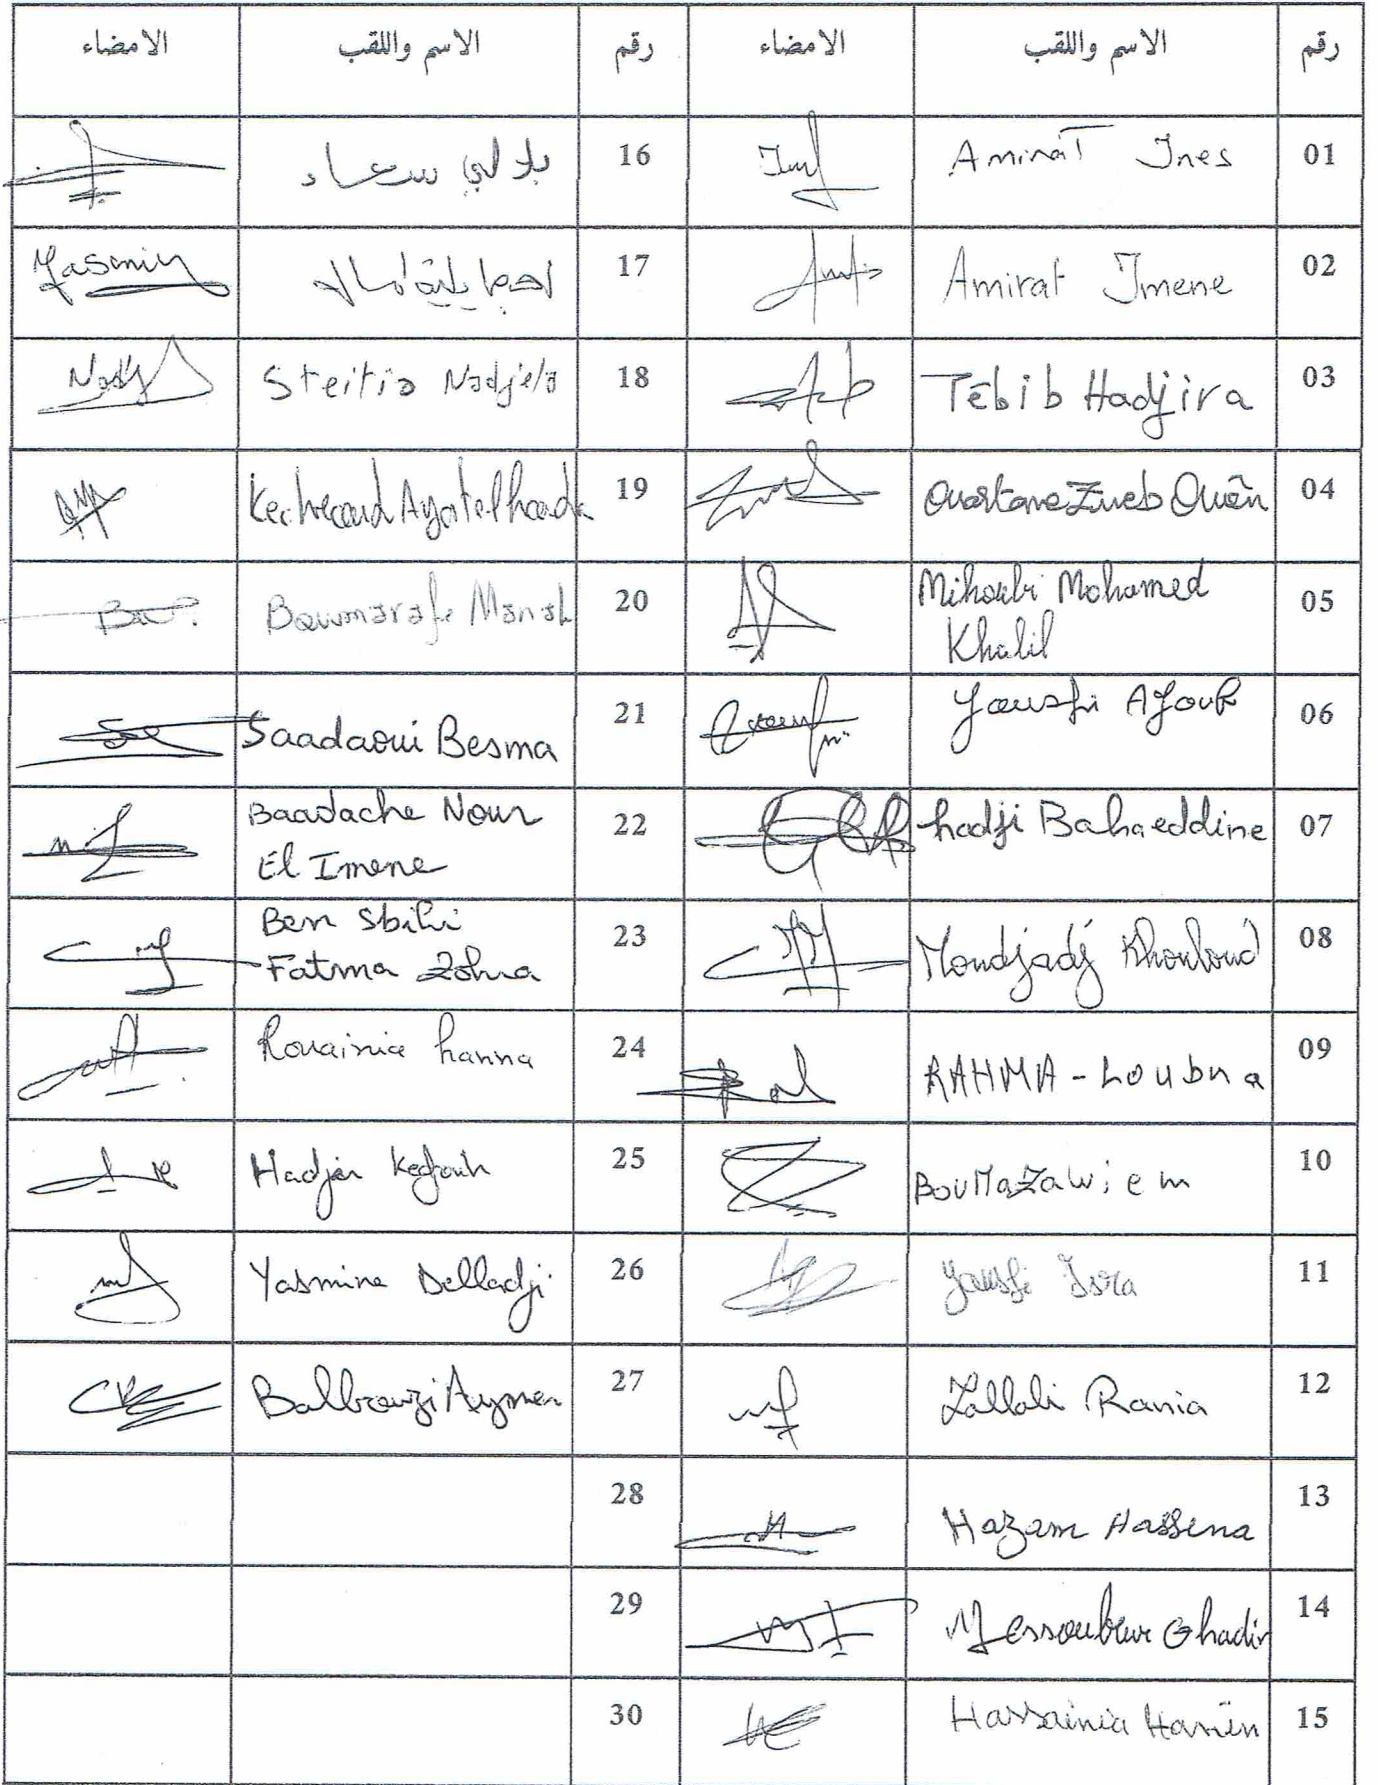 رقم الاسم واللقب الامضاء رقم الاسم واللقب الامضاء
01 Amirat Ines 16 بلالي سعاد
02 Amirat Imene 17 Yasmin
03 Tebib Hadjira 18 Steitia Nadjela Nadj
04 19
05 Mihoubi Mohamed
Khalil 20 Boumarafe Manal
06 Yousfi Ayoub 21 Saadaoui Besma
07 hadji Bahaeddine 22 Baadache Nour
El Imene
08 Moudjadj Khouloud 23 Ben Sbihi
Fatma Zohra
09 RAHMA - Loubna 24 Rouainia hanna
10 BouMaza Wiem 25 Hadjer
11 Yousfi Isra 26 Yasmine Delladji
12 Zallali Rania 27 Aymen
13 Hazam Hassena 28
14 Ghadir 29
15 Hassainia 30